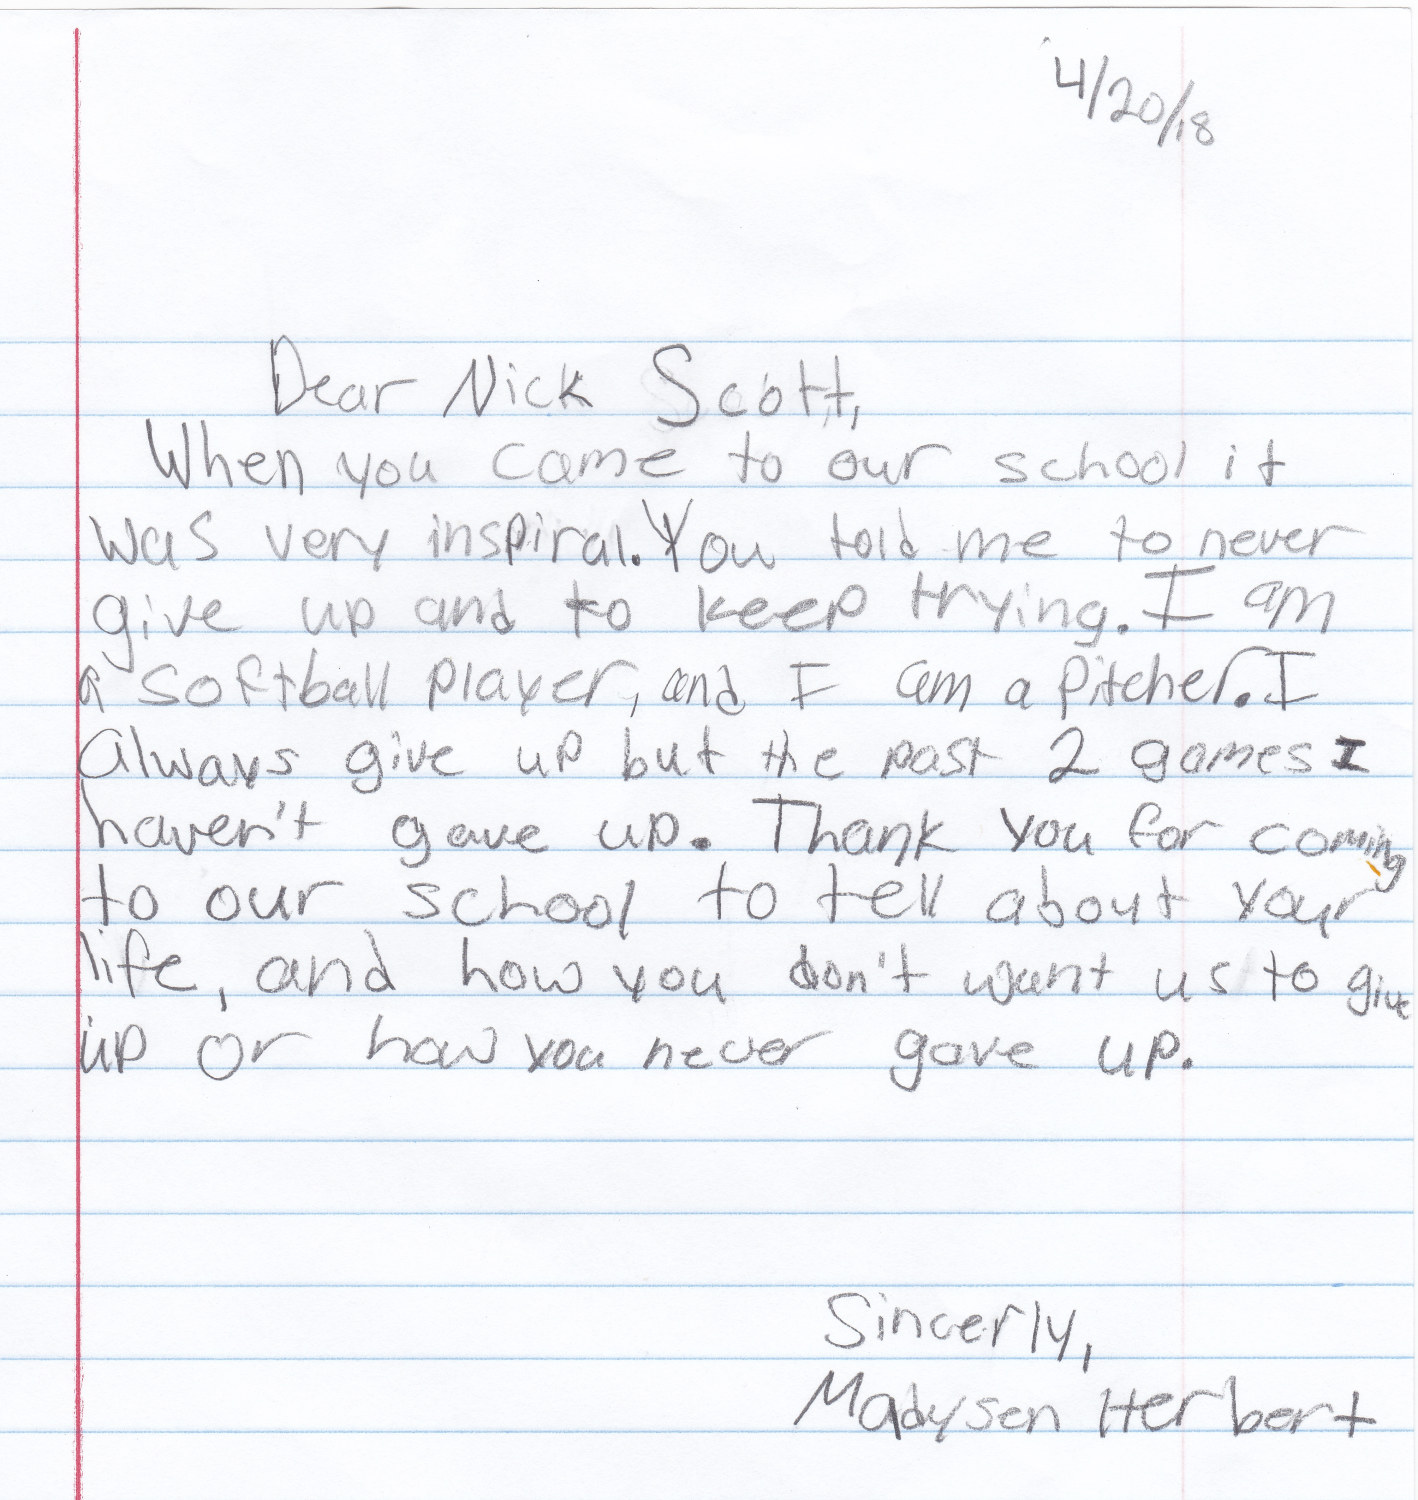 4/20/18
Dear Nick Scott,
When you came to our school it
was very inspiral. You told me to never
give up and to keep trying. I am
a softball player, and I am a pitcher. I
always give up but the past 2 games I
haven't gave up. Thank you for coming
to our school to tell about your
life, and how you don't want us to give
up or how you never gave up.
Sincerly,
Madysen Herbert